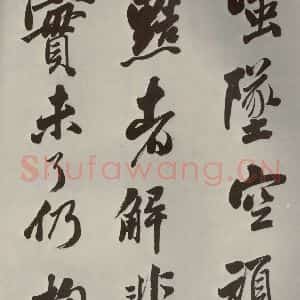 墜空頑
黠者解
實未了仍
Shufawang.CN